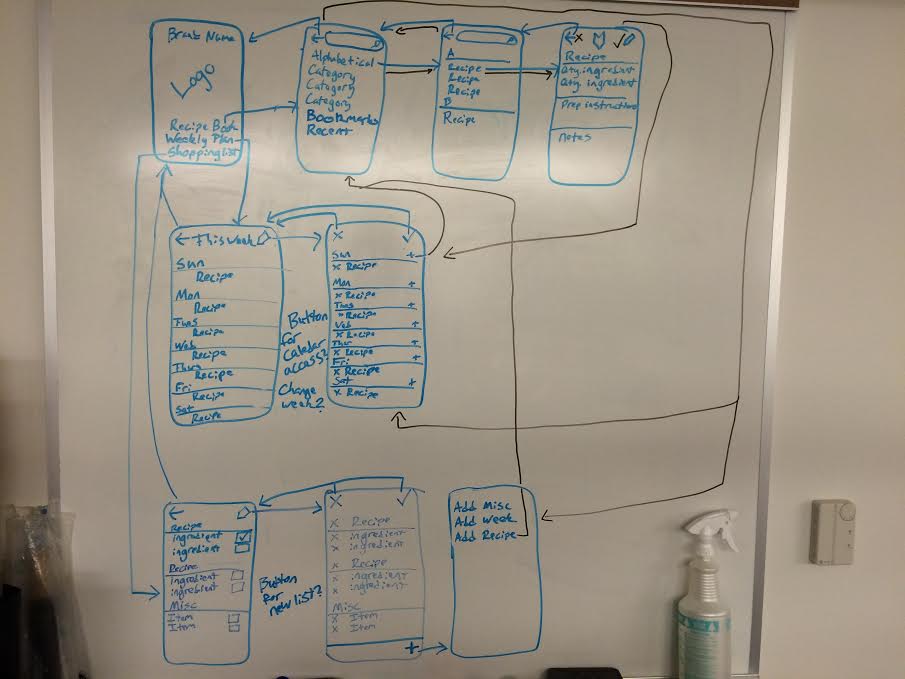 Brand Name
Logo
Recipe Book
Weekly Plan
Shopping list
Alphabetical
Category
Category
Category
Bookmarks
Recent
A
Recipe
Recipe
Recipe
B
Recipe
Recipe
Qty. ingredient
Qty. ingredient
Prep instructions
notes
This week
Sun
Recipe
Mon
Recipe
Tues
Recipe
Wed
Recipe
Thurs
Recipe
Fri
Recipe
Sat
Recipe
Button
for
Calendar
access?
Change
week?
X
Sun +
x Recipe
Mon +
x Recipe
Tues +
x Recipe
Wed +
x Recipe
Thur +
x Recipe
Fri +
x Recipe
Sat +
x Recipe
Recipe
ingredient
ingredient
Recipe
ingredient
ingredient
Misc
Item
Item
Button
for
new list?
X
x Recipe
x ingredient
x ingredient
x Recipe
x ingredient
x ingredient
Misc
x Item
x Item
+
Add Misc
Add Week
Add Recipe